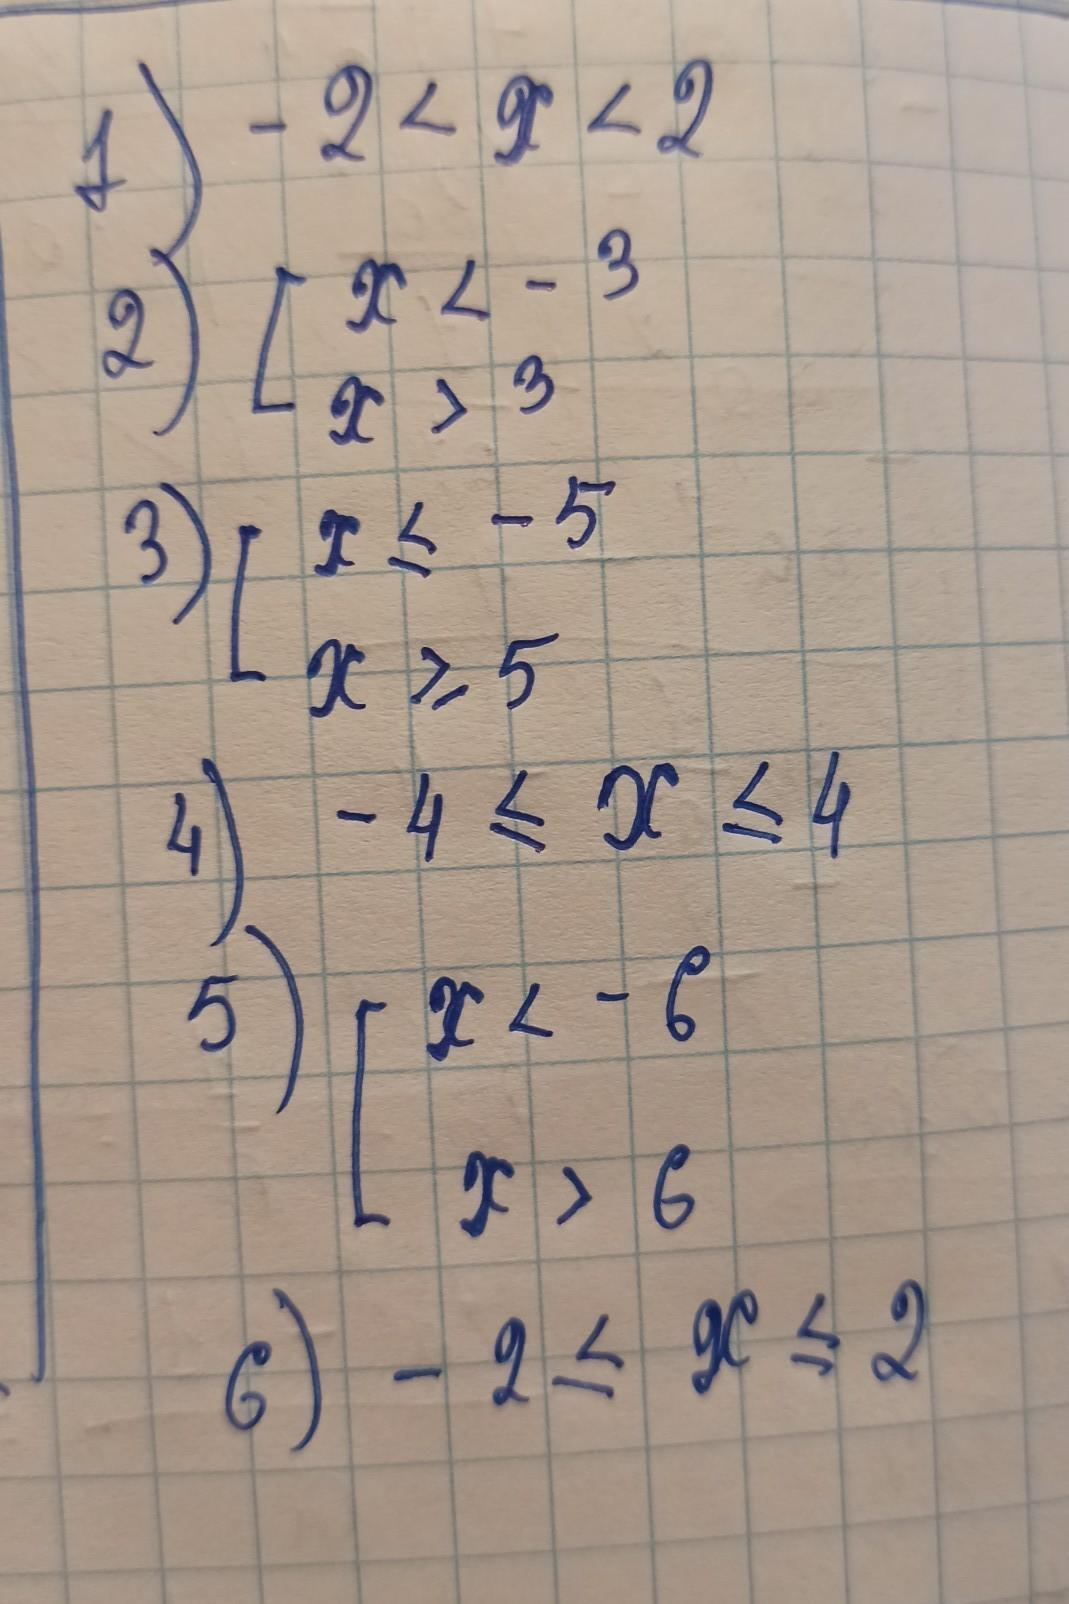 1) - 2 < x < 2
2) [ x < - 3
x > 3
3) [ x ≤ - 5
x ≥ 5
4) - 4 ≤ x ≤ 4
5) [ x < - 6
x > 6
6) - 2 ≤ x ≤ 2